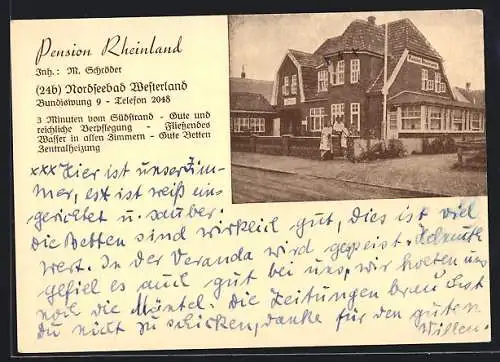 Pension Rheinland
Inh.: M. Schröder
(24b) Nordseebad Westerland
Bundiswung 9 - Telefon 2048
3 Minuten vom Südstrand - Gute und
reichliche Verpflegung - Fließendes
Wasser in allen Zimmern - Gute Betten
Zentralheizung
xxx Hier ist unser Zim-
mer, es ist weiß ein-
gerichtet u. sauber.
Die Betten sind wirklich gut, dies ist viel
Wert. In der Veranda wird gespeist. Helmuth
gefiel es auch gut bei uns, wir holten uns
noch die Mäntel. Die Zeitungen brauchst
Du nicht zu schicken, danke für den guten
Willen.